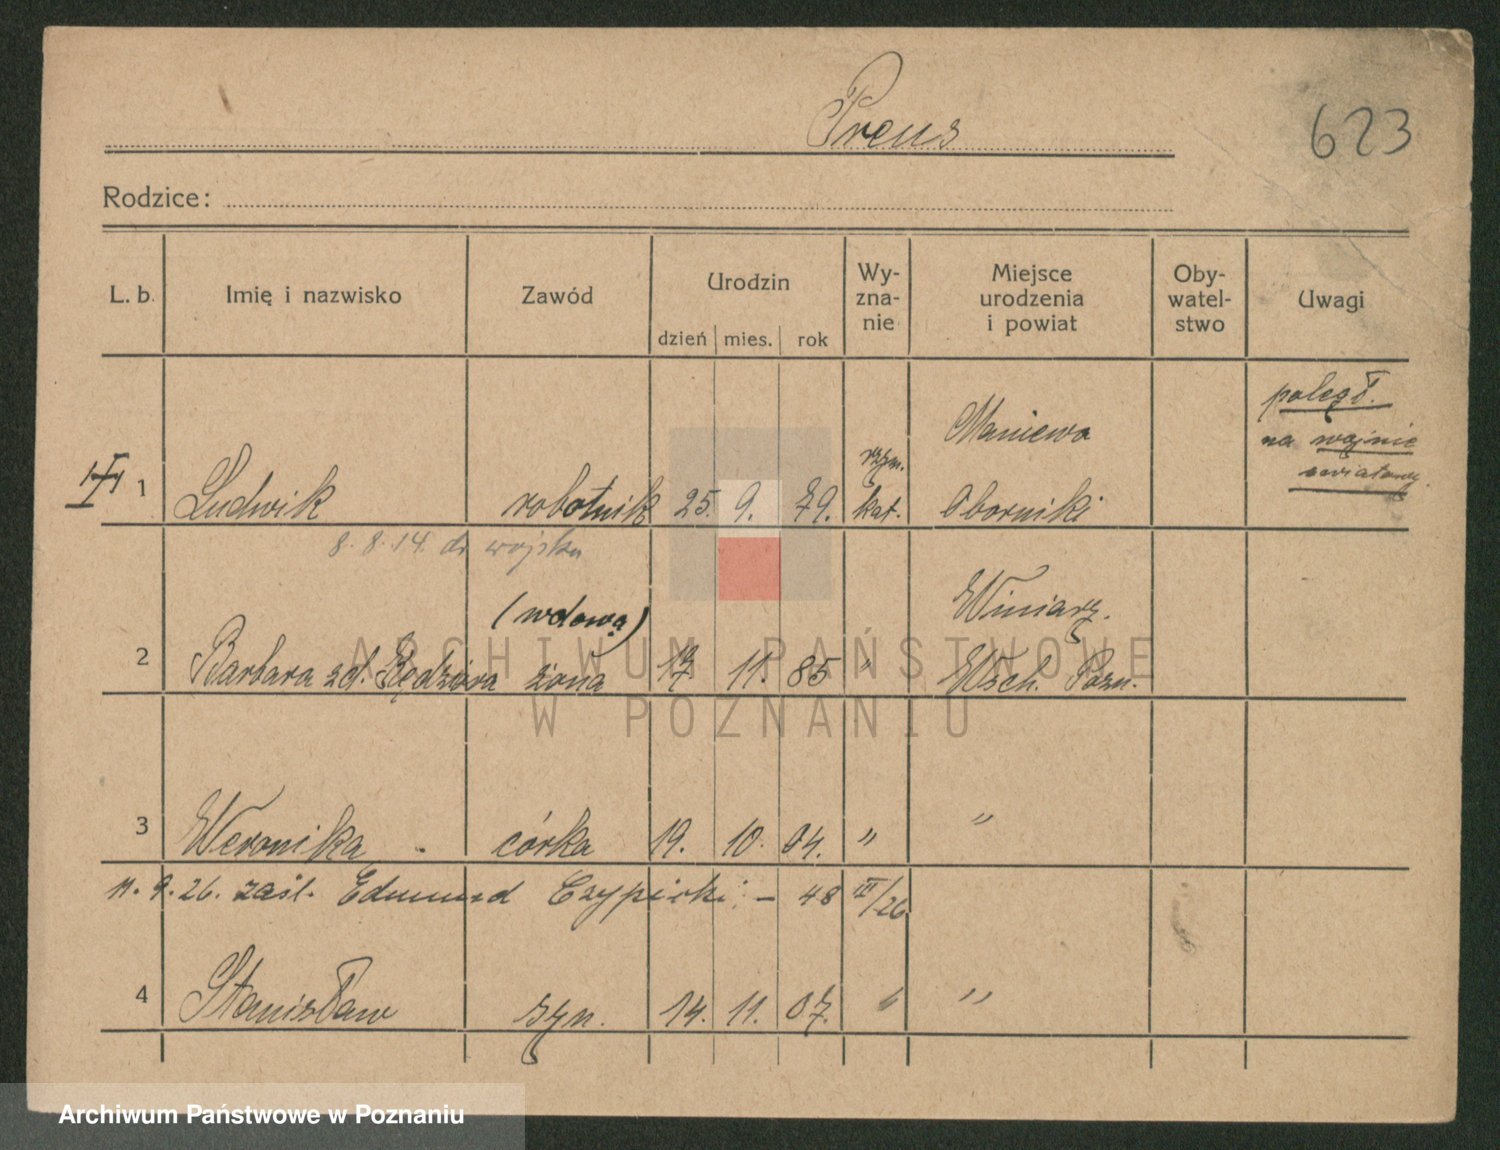 Preus
623
Rodzice:
L. b. Imię i nazwisko Zawód Urodzin dzień mies. rok Wy-zna-nie Miejsce urodzenia i powiat Oby-watel-stwo Uwagi
poległ.
Maniewo na wojnie
rzym. światowej.
1 Ludwik robotnik 25. 9. 79. kat. Oborniki
8. 8. 14. do wojska
(wdowa) Winiary.
2 Barbara zd. Będziora żona 11. 85 " Wsch. Pozn.
3 Weronika córka 19. 10. 04. " "
11. 9. 26. zaśl. Edmund Czypicki – 48 III/26
4 Stanisław syn. 14. 11. 07. " "
ARCHIWUM PAŃSTWOWE
W POZNANIU
Archiwum Państwowe w Poznaniu